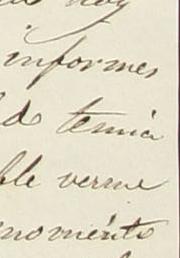 hoy
informes
tenia
ble verme
momento